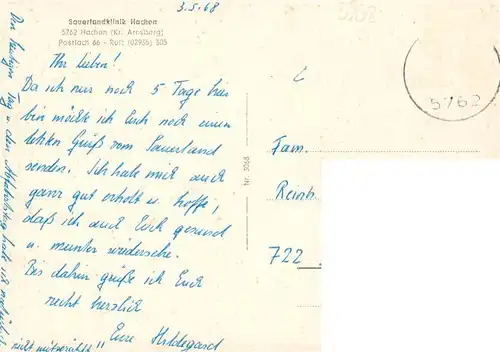 3.5.68
Sauerlandklinik Hachen
5762 Hachen (Kr. Arnsberg)
Postfach 66 - Ruf: (02935) 305
Ihr Lieben!
Da ich nur noch 5 Tage hier
bin möchte ich Euch noch einen
letzten Gruß vom Sauerland
senden. Ich habe mich auch
ganz gut erholt u. hoffe,
daß ich auch Euch gesund
u. munter wiedersehe.
Bis dahin grüße ich Euch
recht herzlich
Eure Hildegard
Der heutige Tag u. den Abfahrtstag habe ich natürlich
nicht mitgezählt"
Nr. 3068
5762
Fam.
Reinh
722